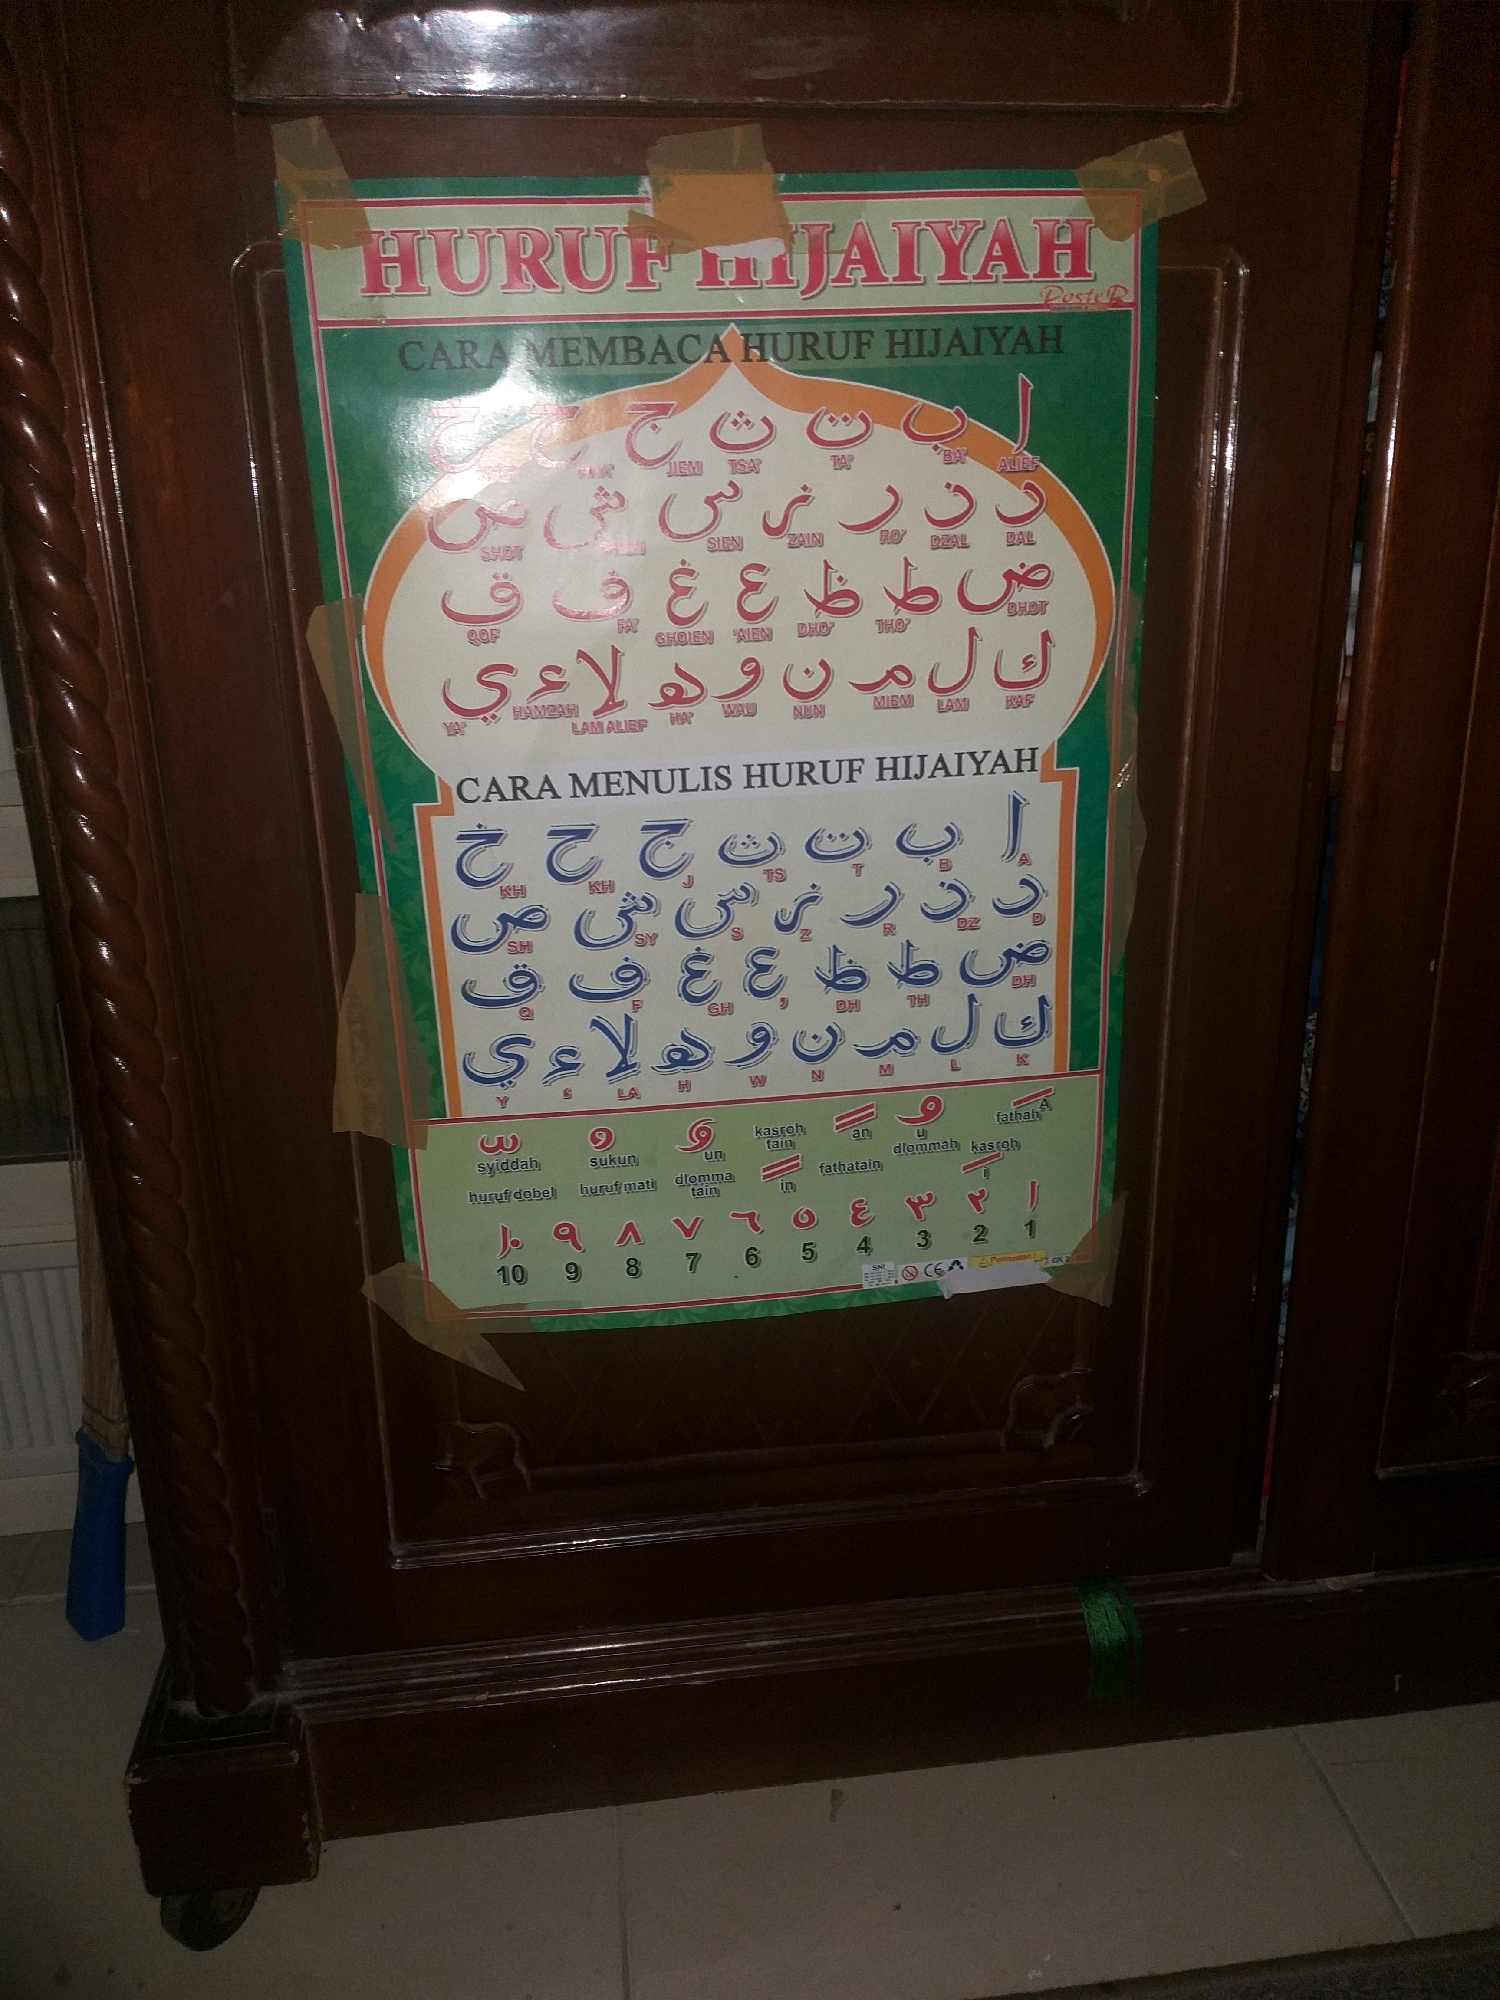 HURUF HIJAIYAH
PosteR
CARA MEMBACA HURUF HIJAIYAH
ا ب ت ث ج ح خ
ALIEF BA' TA' TSA' JIEM
د ذ ر ز س ش ص
DAL DZAL RO' ZAIN SIEN SHOT
ض ط ظ ع غ ف ق
DHOT THO' DHO' 'AIEN GHOIEN FA' QOF
ك ل م ن و ه لا ء ي
KAF LAM MIEM NUN WAU HA' LAM ALIEF HAMZAH YA'
CARA MENULIS HURUF HIJAIYAH
ا ب ت ث ج ح خ
A B T TS J KH KH
د ذ ر ز س ش ص
D DZ R Z S SY SH
ض ط ظ ع غ ف ق
DH TH DH , GH F Q
ك ل م ن و ه لا ء ي
K L M N W H LA ء Y
A fathah
i kasroh
u dlommah
an fathatain
in kasroh tain
un dlomma tain
sukun huruf mati
syiddah huruf dobel
١ ٢ ٣ ٤ ٥ ٦ ٧ ٨ ٩ ١٠
1 2 3 4 5 6 7 8 9 10
SNI CE Peringatan !